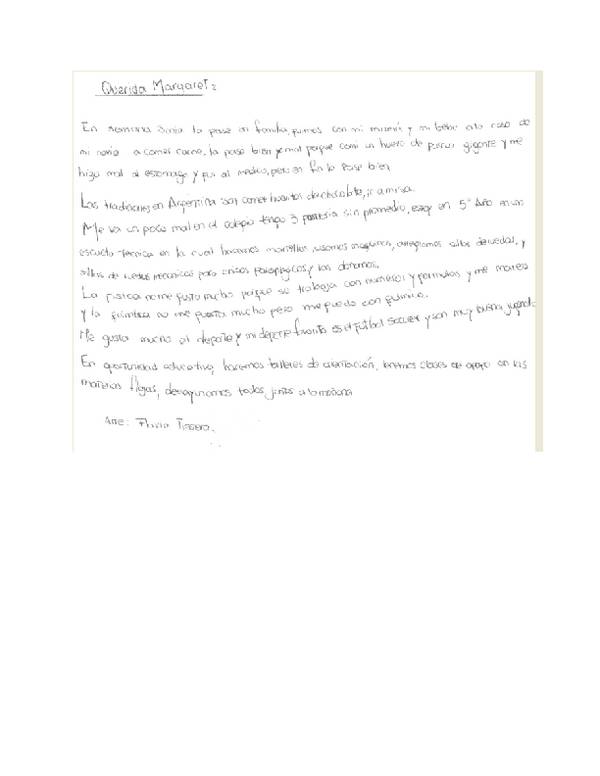 Querida Margaret:
En semana Santa la pase en familia, fuimos con mi mamá y mi bebe a la casa de
mi novio a comer carne, la pase bien y mal porque comi un huevo de pascua gigante y me
hizo mal al estomago y fui al medico, pero en fin la pase bien.
Las tradiciones en Argentina son comer huevitos de chocolate, ir a misa.
Me va un poco mal en el colegio tengo 3 materia sin promedio, estoy en 5° Año en una
escuela técnica en la cual hacemos martillos, usamos maquinas, arreglamos sillas de ruedas, y
sillas de ruedas mecanicas para chicos y las donamos.
La fisica no me gusta mucho porque se trabaja con numeros y formulas y me marea
y la quimica no me gusta mucho pero me puedo con quimica.
Me gusta mucho el deporte y mi deporte favorito es el fútbol soccer y soy muy buena jugando.
En oportunidad educativa, hacemos talleres de orientación, tenemos clases de apoyo en las
materias flojas, desayunamos todos juntos a la mañana
Atte: Flavia